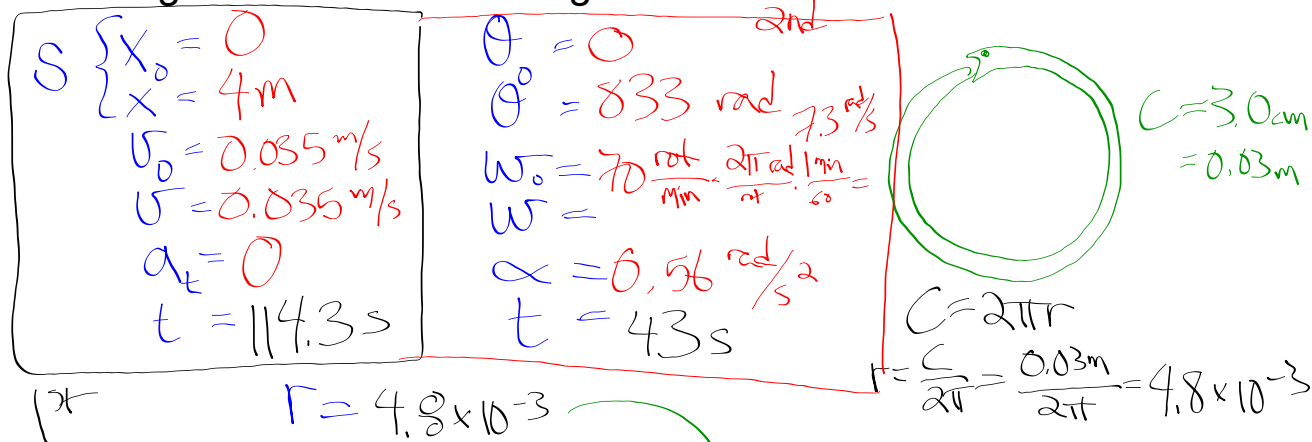 S { x₀ = 0
x = 4m
v₀ = 0.035 m/s
v = 0.035 m/s
a_t = 0
t = 114.3 s
1st
2nd
θ₀ = 0
θ = 833 rad
7.3 rad/s
ω₀ = 70 rot/min · 2π rad/rot · 1 min/60 =
ω =
α = 0.56 rad/s²
t = 43 s
r = 4.8 × 10⁻³
C = 3.0 cm
= 0.03 m
C = 2πr
r = C/2π = 0.03m/2π = 4.8 × 10⁻³